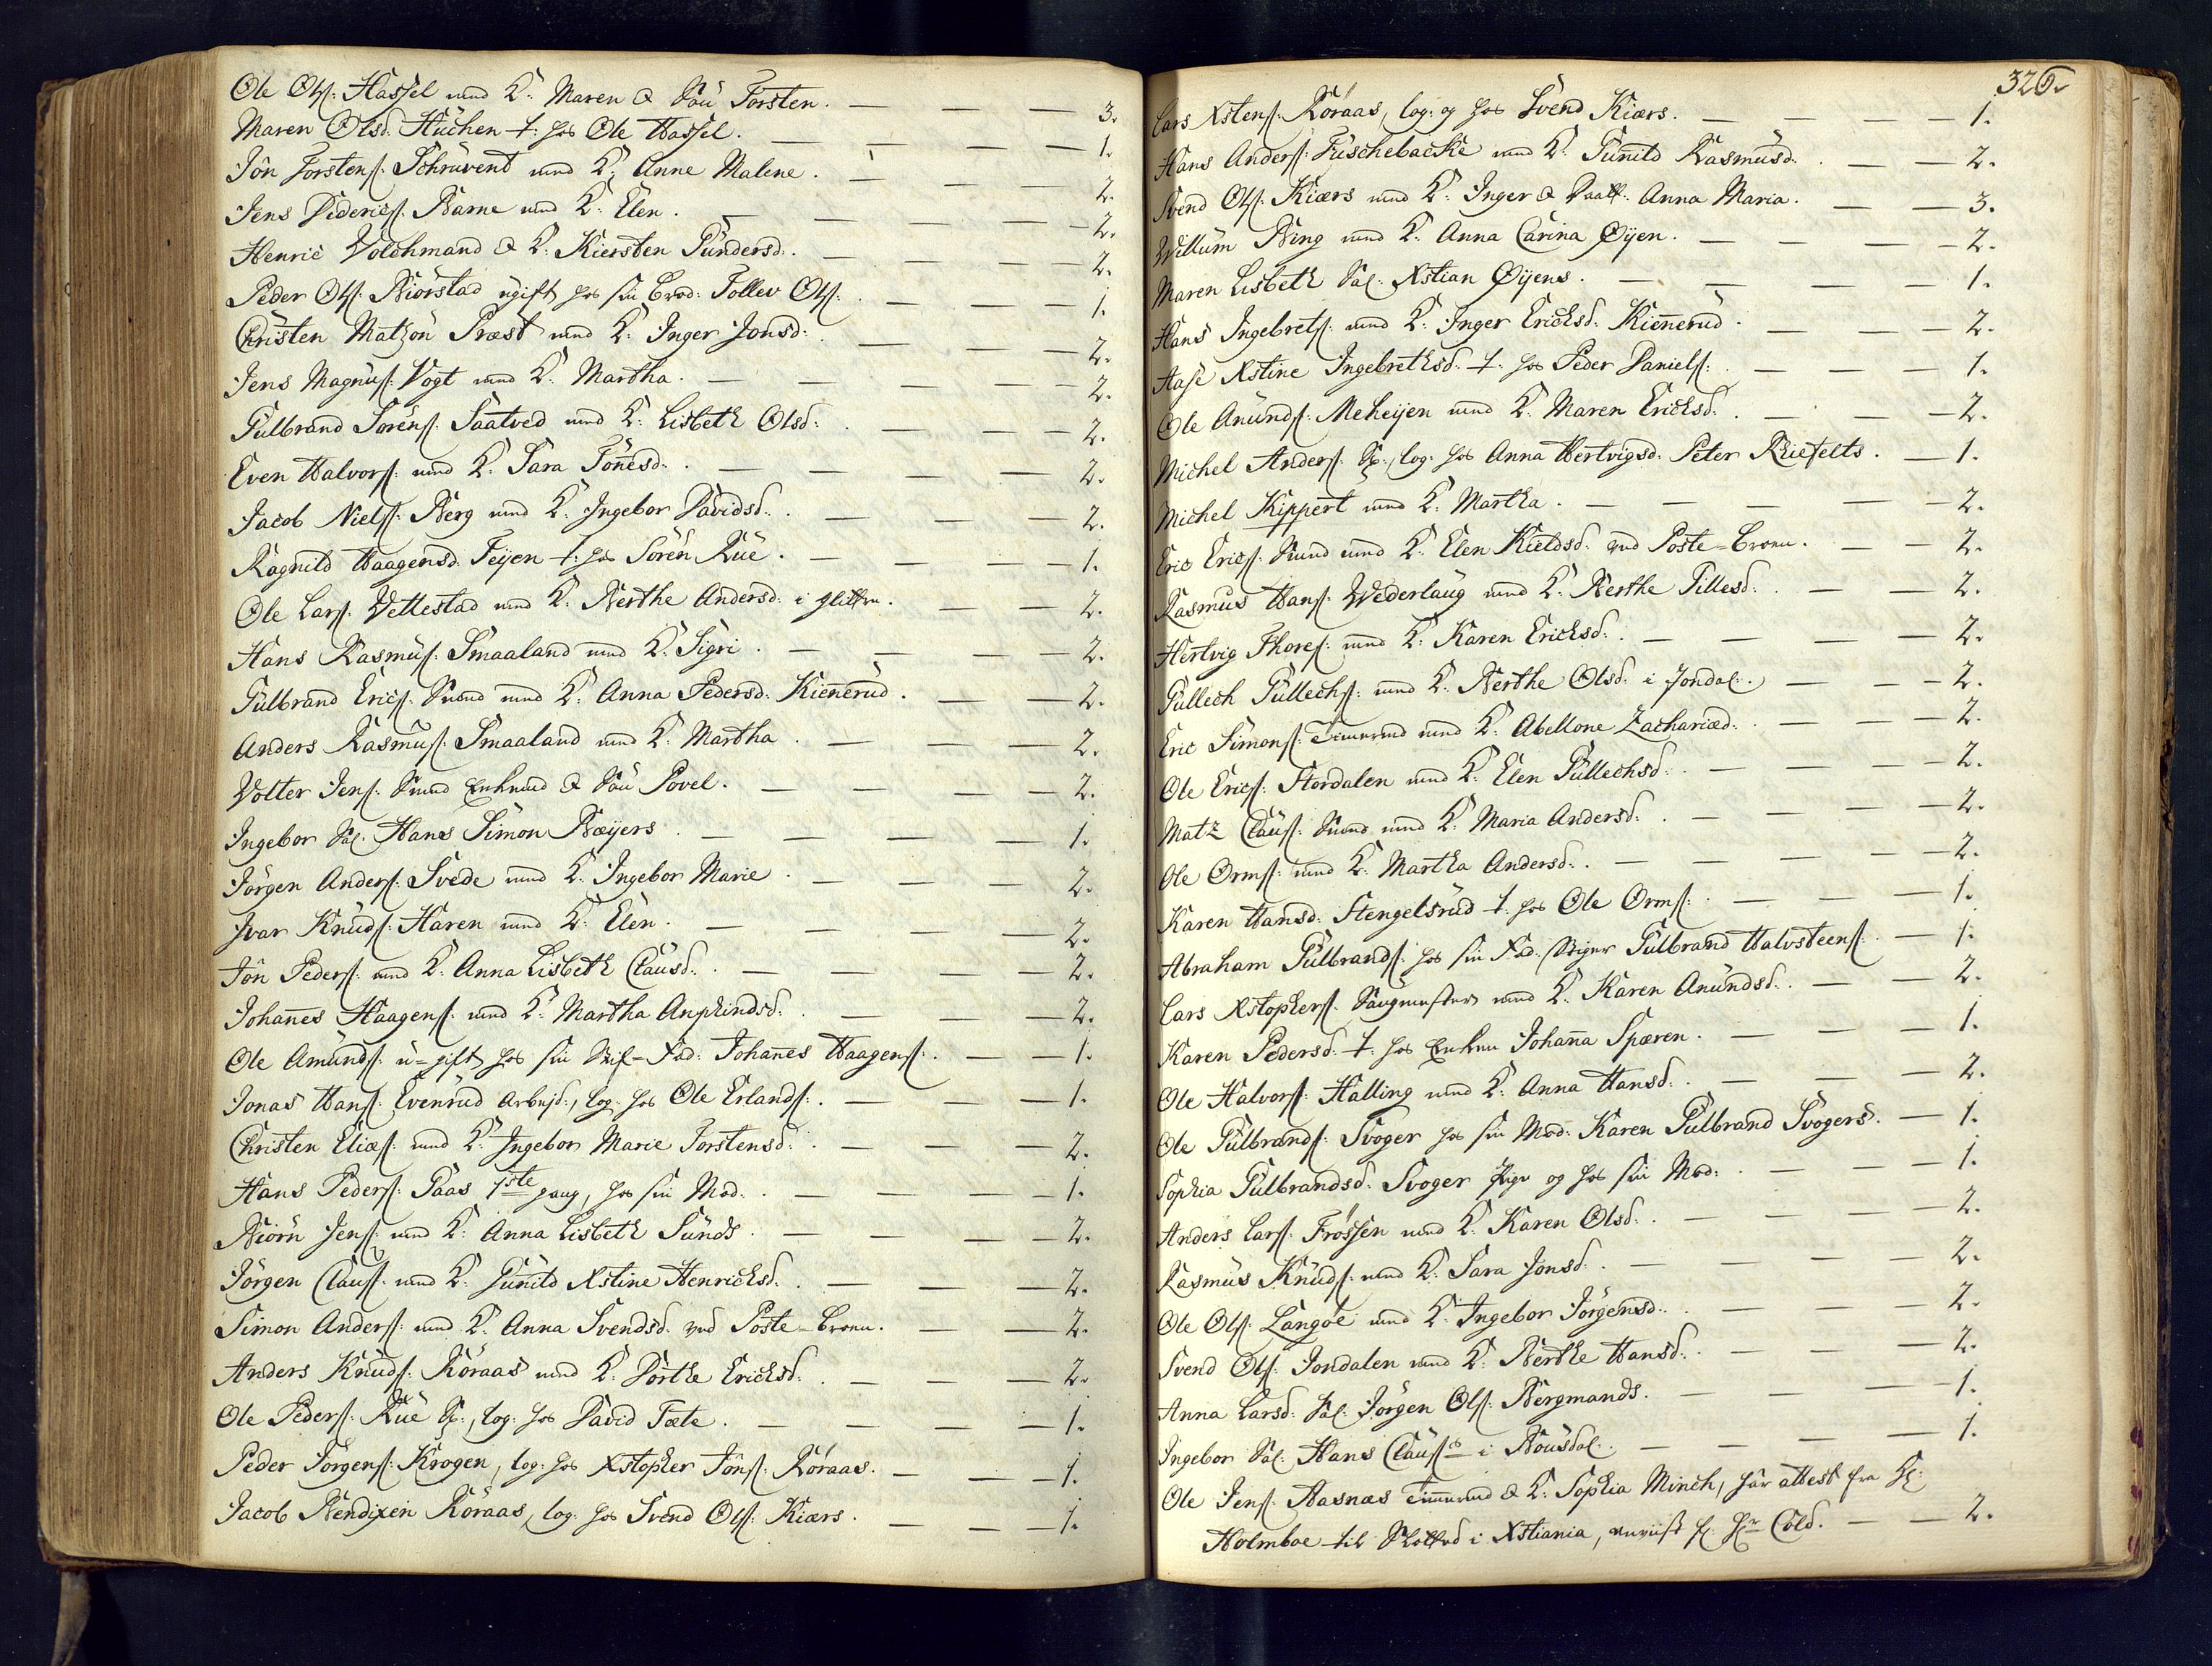 Ole Olſ: Hassel med K: Maren & Søn Torsten. — — — 3.
Maren Olsd. Huchen t: hos Ole Hassel. — — — 1.
Jön Torstenſ: Schruvent med K: Anne Malene. — — — 2.
Jens Diderichſ: Barne med K: Elen. — — — 2.
Henric Volckmand & K: Kiersten Gundersd: — — — 2.
Peder Olſ: Biörstad ugift hos sin Brod: Tollev Olſ: — — — 1.
Christen Matzön Præst med K: Inger Jonsd: — — — 2.
Jens Magnuſ: Vogt med K: Martha. — — — 2.
Gulbrand Sörenſ: Saatved med K: Lisbeth Olsd: — — — 2.
Even Halvorſ: med K: Sara Tönnesd: — — — 2.
Jacob Nielſ: Berg med K: Ingebor Davidsd. — — — 2.
Ragnild Haagensd. Teijen t: hos Sören Rüe. — — — 1.
Ole Larſ: Vettestad med K: Berthe Andersd: i Glitten. — — — 2.
Hans Rasmuſ: Smaaland med K: Sigri. — — — 2.
Gulbrand Ericſ: Smed med K: Anna Pedersd: Kiennerud. — — 2.
Anders Rasmuſ: Smaaland med K: Martha. — — — 2.
Volter Jenſ: Smed Enkemd & Søn Povel. — — — 2.
Ingebor Sal. Hans Simon Bæijers. — — — 1.
Jörgen Anderſ: Svede med K: Ingebor Marie. — — — 2.
Ivar Knudſ: Haren med K: Elen. — — — 2.
Jön Pederſ: med K: Anna Lisbeth Clausd: — — — 2.
Johannes Haagenſ: med K: Martha Anphindsd: — — — 2.
Ole Amundſ: u-gift hos sin Stif-Fad: Johannes Haagenſ: — — 1.
Jonas Hanſ: Evenrud arbejd:, log. hos Ole Erlandſ: — — — 1.
Christen Eliæſ: med K: Ingebor Marie Torstensd: — — — 2.
Hans Pederſ: Paas 1ste gang, hos sin Mod: — — — 1.
Biörn Jenſ: med K: Anna Lisbeth Sunds. — — — 2.
Jörgen Clauſ: med K: Gunild Xstine Henrichsd. — — — 2.
Simon Anderſ: med K: Anna Svendsd. ved Poste-Broen. — — 2.
Anders Knudſ: Röraas med K: Dorthe Erichsd: — — — 2.
Ole Pederſ: Rüe S:, log: hos David Tæte. — — — 1.
Peder Jörgenſ: Krogen, log: hos Xstopher Jönſ: Röraas. — — 1.
Jacob Bendixen Röraas, log: hos Svend Olſ: Kiærs. — — — 1.
326.
Lars Xstenſ: Röraas, log: og hos Svend Kiærs. — — — 1.
Hans Anderſ: Fuschebacke med K: Gunild Rasmusd: — — 2.
Svend Olſ: Kiærs med K: Inger & Datt: Anna Maria. — — 3.
Willum Bing med K: Anna Carina Øijen. — — — 2.
Maren Lisbeth Sal: Xstian Øijens. — — — 1.
Hans Ingebretſ: med K: Inger Erichsd. Kiennerud. — — — 2.
Aase Xstine Ingebrethsd. t: hos Peder Danielſ: — — — 1.
Ole Anundſ: Meheijen med K: Maren Erichsd: — — — 2.
Michel Anderſ: S:, log: hos Anna Hertvigsd: Peter Riefelts. — 1.
Michel Kippert med K: Martha. — — — 2.
Eric Ericſ: Sund med K: Elen Kieldsd. ved Poste-Broen. — — 2.
Rasmus Hanſ: Wederlaug med K: Berthe Tillesd: — — 2.
Hertvig Thoreſ: med K: Karen Erichsd: — — — 2.
Gullech Gullechſ: med K: Berthe Olsd: i Jondal. — — 2.
Eric Simonſ: Timermd med K: Abellone Zachariæd: — — — 2.
Ole Ericſ: Stordalen med K: Elen Gullechsd: — — — 2.
Matz Clauſ: Smed med K: Maria Andersd: — — — 2.
Ole Ormſ: med K: Martha Andersd: — — — 2.
Karen Hansd: Stengelsrud t: hos Ole Ormſ: — — — 1.
Abraham Gulbrandſ: hos sin Fad: Stiger Gulbrand Halvsteenſ: — 1.
Lars Xstopherſ: Saugmester med K: Karen Anundsd: — — 2.
Karen Pedersd. t: hos Enken Johanna Spæren. — — — 1.
Ole Halvorſ: Halling med K: Anna Hansd: — — — 2.
Ole Gulbrandſ: Svoger hos sin Mod: Karen Gulbrand Svogers. — 1.
Sophia Gulbrandsd. Svoger Pige og hos sin Mod: — — — 1.
Anders Larſ: Frössen med K: Karen Olsd: — — — 2.
Rasmus Knudſ: med K: Sara Jonsd: — — — 2.
Ole Olſ: Langöe med K: Ingebor Jörgensd: — — — 2.
Svend Olſ: Jondalen med K: Berthe Hansd: — — — 2.
Anna Larsd: Sal: Jörgen Olſ: Bergmands. — — — 1.
Ingebor Sal: Hans Clauſes i Bousdal. — — — 1.
Ole Jenſ: Aasnæs Timermd & K: Sophia Minch, har attest fra H:
Holmboe til i Xstiania, Hr Cold. — — 2.